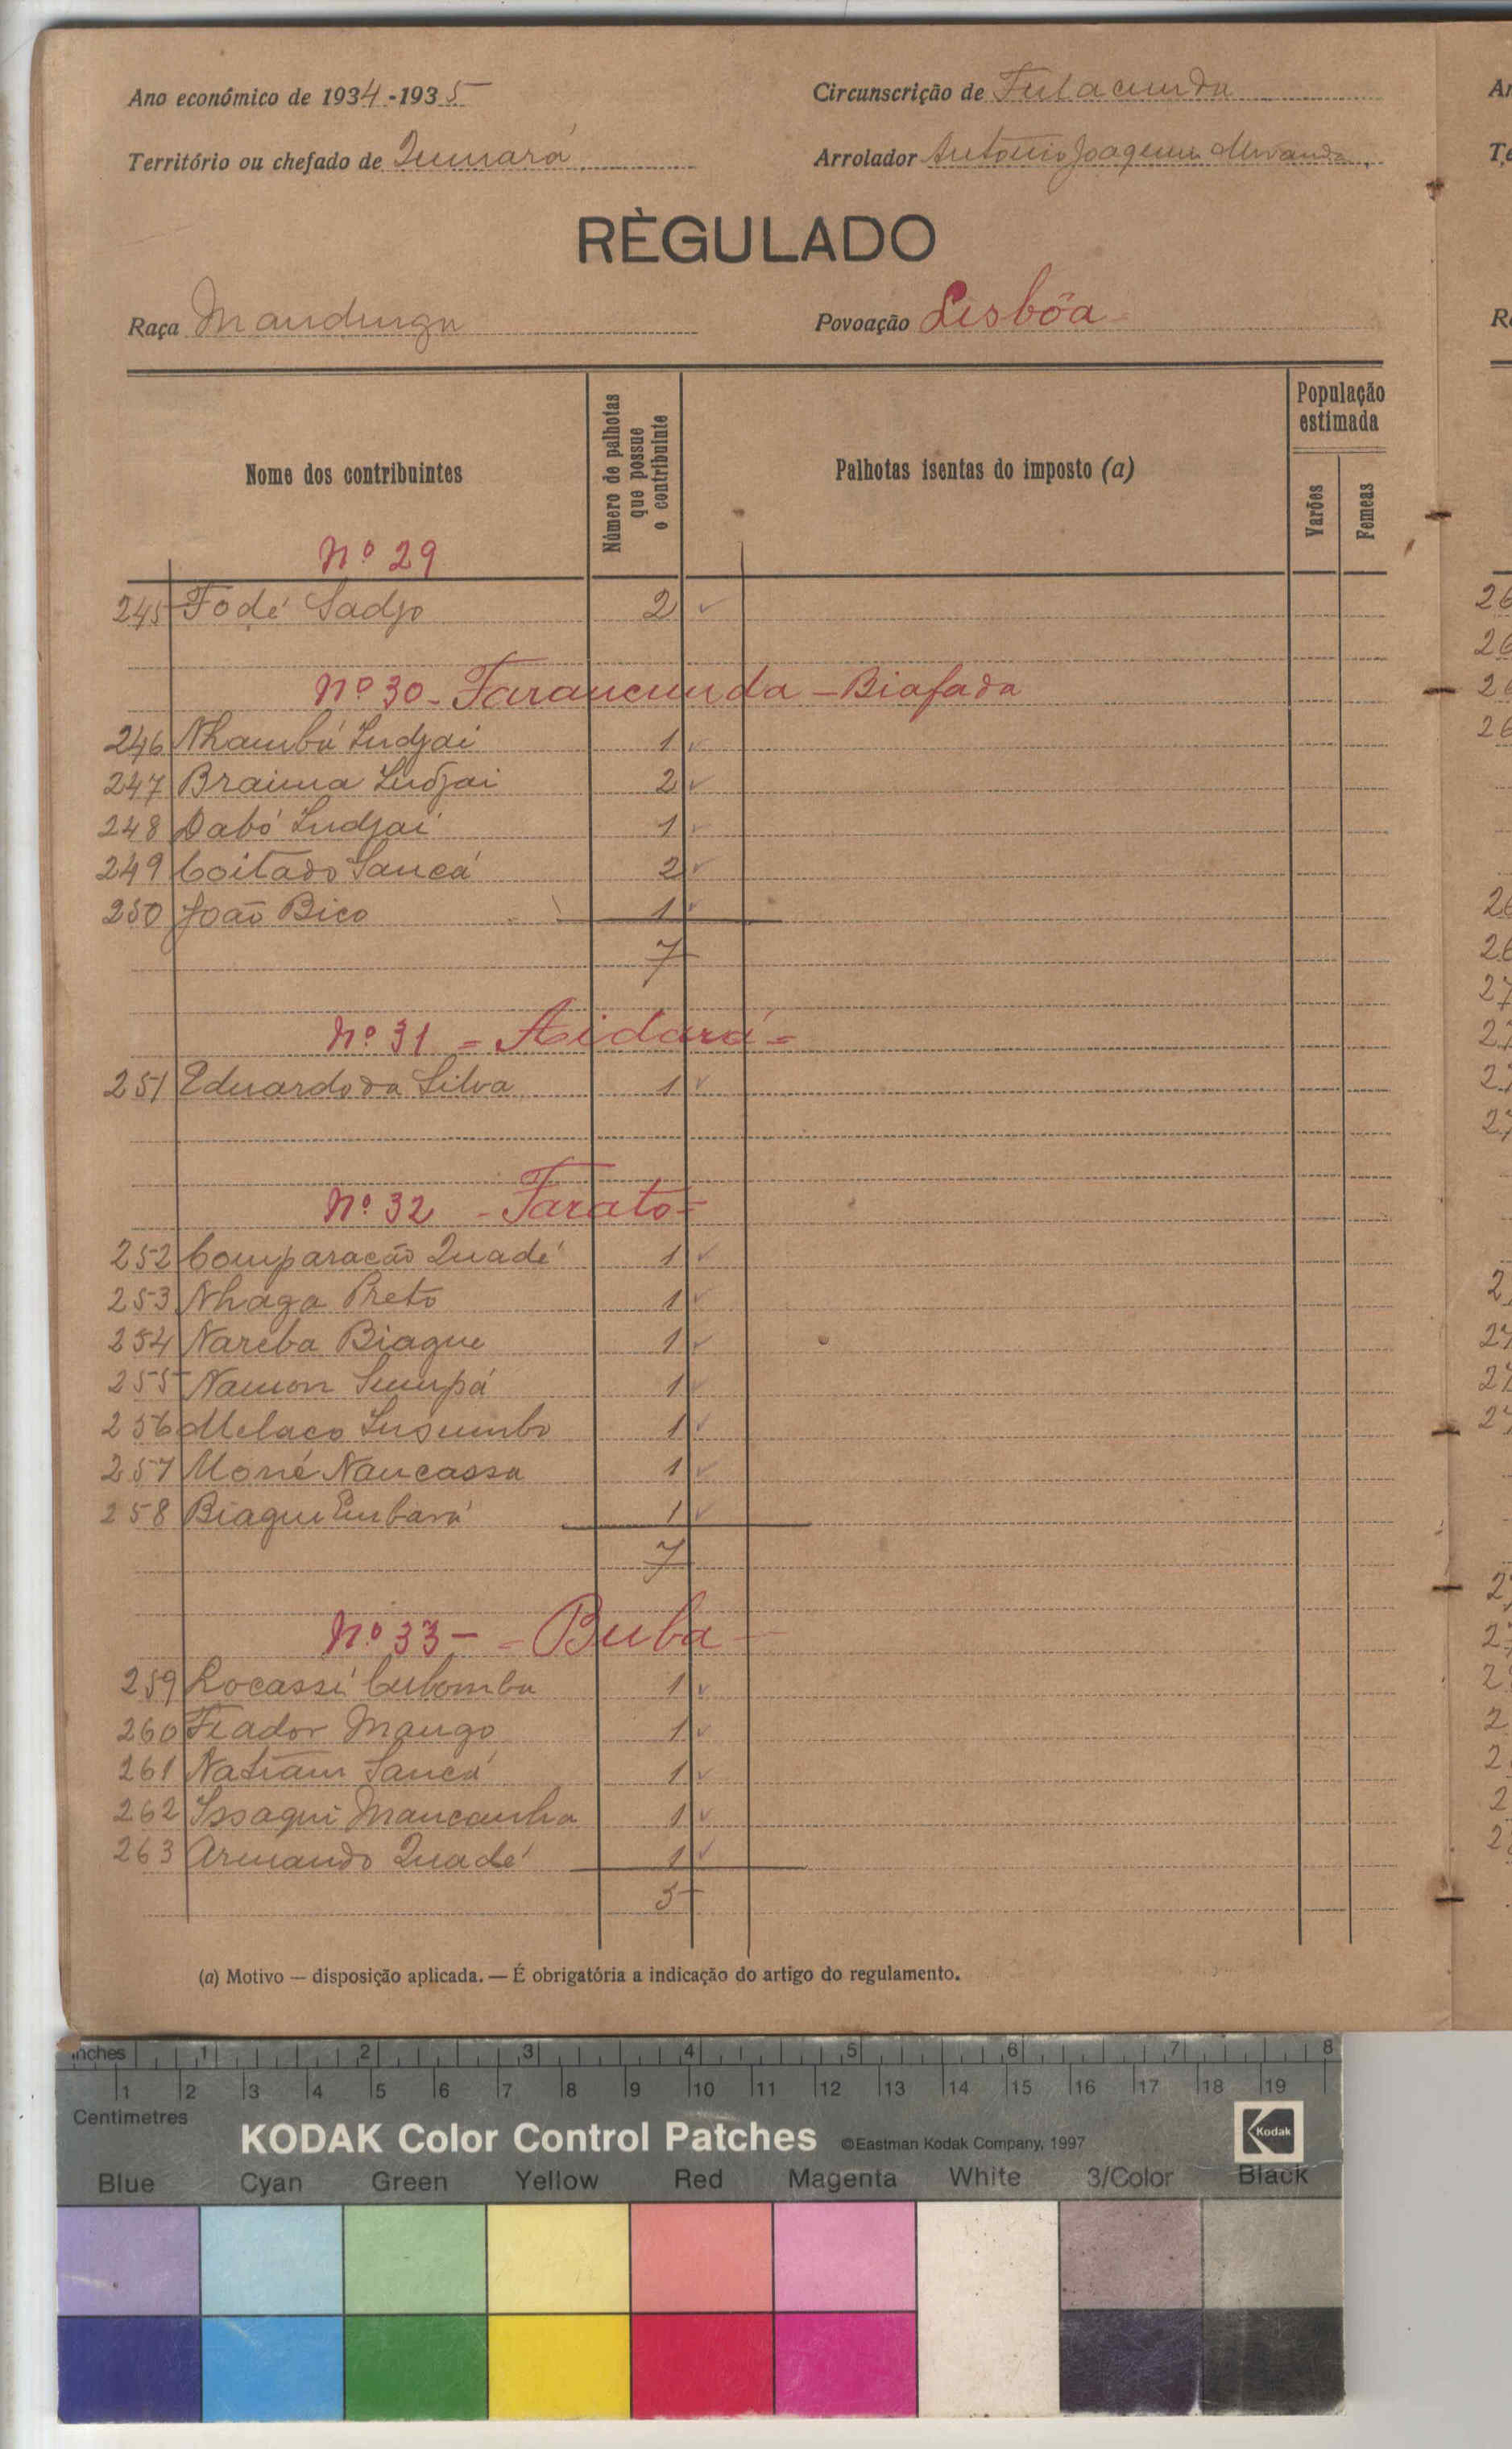 Ano económico de 1934-1935
Circunscrição de Fulacunda
Território ou chefado de Quinará
Arrolador António Joaquim Miranda
RÈGULADO
Raça Mandinga
Povoação Lisbôa
Nome dos contribuintes
Número de palhotas que possue o contribuinte
Palhotas isentas do imposto (a)
População estimada
Varões
Femeas
Nº 29
245 Fodé Sadjo 2
Nº 30 - Farancunda - Biafada
246 Nhambú Indjai 1
247 Braima Indjai 2
248 Dabó Indjai 1
249 Coitado Sancá 2
250 João Bico 1
7
Nº 31 = Aidará =
251 Eduardo da Silva 1
Nº 32 - Farato =
252 Comparacão Quadé 1
253 Nhaga Preto 1
254 Nareba Biague 1
255 Namon 1
256 1
257 Nancassa 1
258 Biague Embaná 1
7
Nº 33 - - Buba -
259 Locassi 1
260 Fiador Mango 1
261 Sancá 1
262 Issaqui Mancanha 1
263 Armando Quadé 1
5
(a) Motivo — disposição aplicada. — É obrigatória a indicação do artigo do regulamento.
inches 1 2 3 4 5 6 7 8
1 2 3 4 5 6 7 8 9 10 11 12 13 14 15 16 17 18 19
Centimetres
KODAK Color Control Patches ©Eastman Kodak Company, 1997 Kodak
Blue Cyan Green Yellow Red Magenta White 3/Color Black